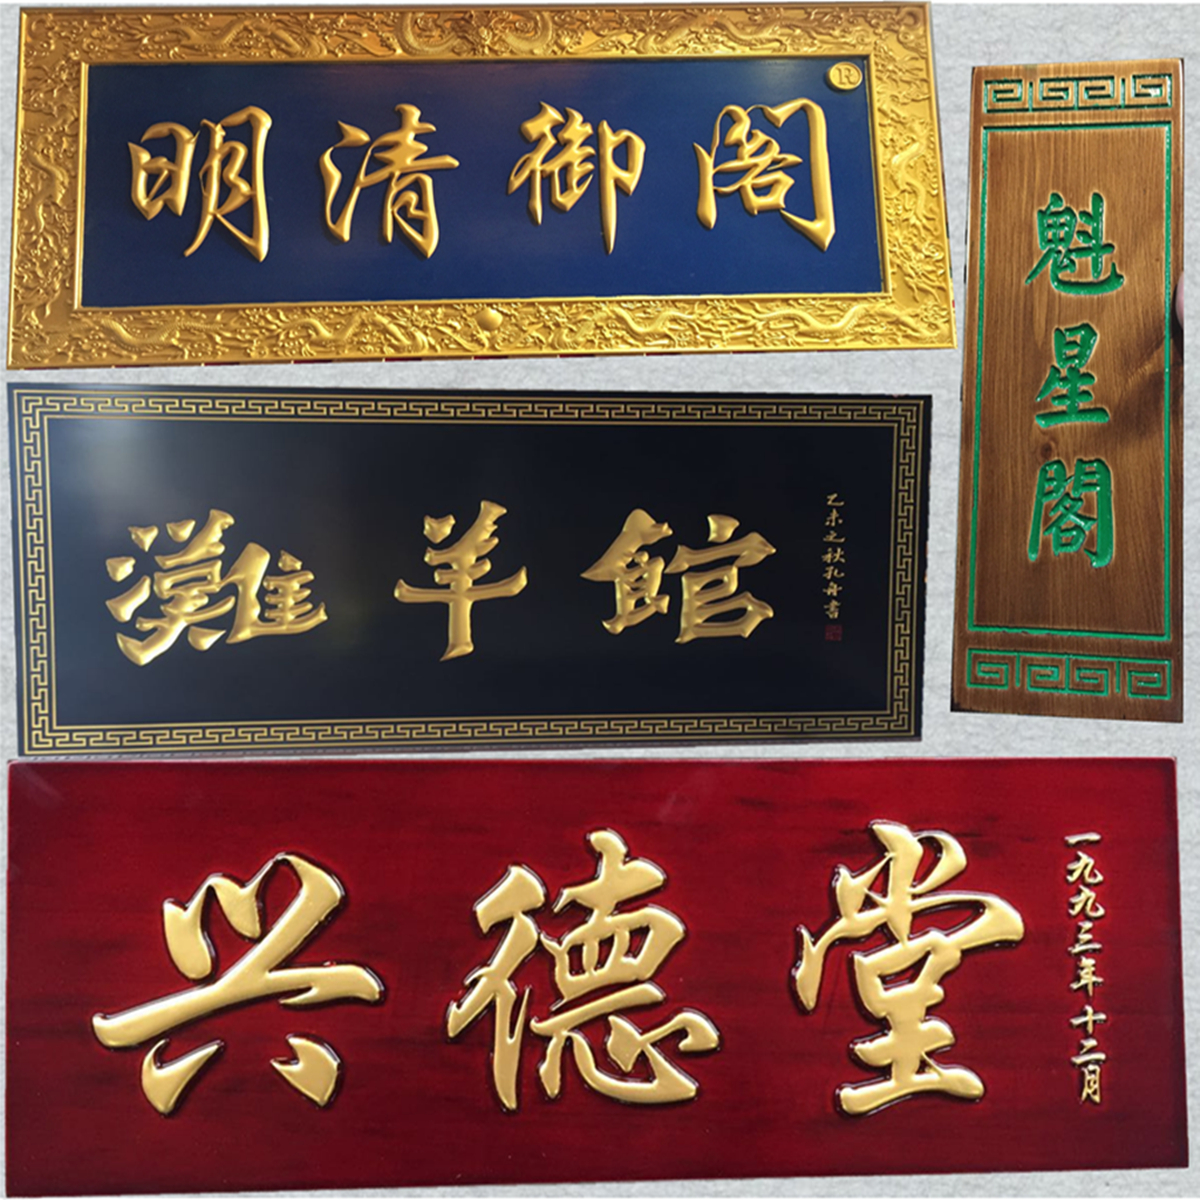 明清御阁
®
魁星阁
灘羊館
乙未之秋孔舟書
兴德堂
一九九三年十二月